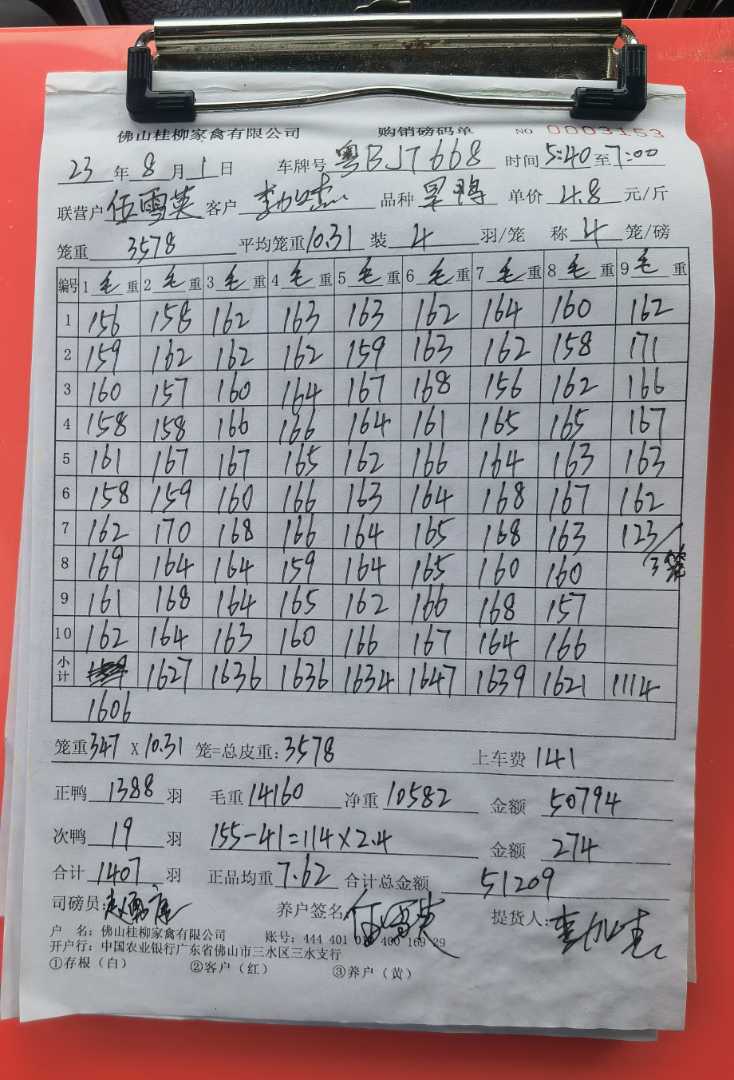 佛山桂柳家禽有限公司 购销磅码单 NO 0003153
23年8月1日 车牌号粤BJT668 时间5:40至7:00
联营户伍雪英 客户 品种 单价4.8元/斤
笼重3578 平均笼重10.31 装4羽/笼 称4笼/磅
编号 1毛重 2毛重 3毛重 4毛重 5毛重 6毛重 7毛重 8毛重 9毛重
1 156 158 162 163 163 162 164 160 162
2 159 162 162 162 159 163 162 158 171
3 160 157 160 164 167 168 156 162 166
4 158 158 166 166 164 161 165 165 167
5 161 167 167 165 162 166 164 163 163
6 158 159 160 166 163 164 168 167 162
7 162 170 168 166 164 165 168 163 123/3笼
8 169 164 164 159 164 165 160 160
9 161 168 164 165 162 166 168 157
10 162 164 163 160 166 167 164 166
小计 1627 1636 1636 1634 1647 1639 1621 1114
1606
笼重347X10.31笼=总皮重:3578 上车费141
正鸭1388羽 毛重14160 净重10582 金额50794
次鸭19羽 155-41=114×2.4 金额274
合计1407羽 正品均重7.62 合计总金额51209
司磅员: 养户签名伍雪英 提货人:
户 名:佛山桂柳家禽有限公司 账号:444 401 01 400 169 29
开户行:中国农业银行广东省佛山市三水区三水支行
①存根(白) ②客户(红) ③养户(黄)